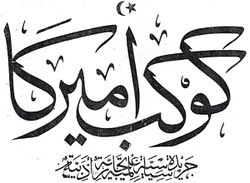 كوكب أميركا
جريدة سياسية علمية تجارية أدبية